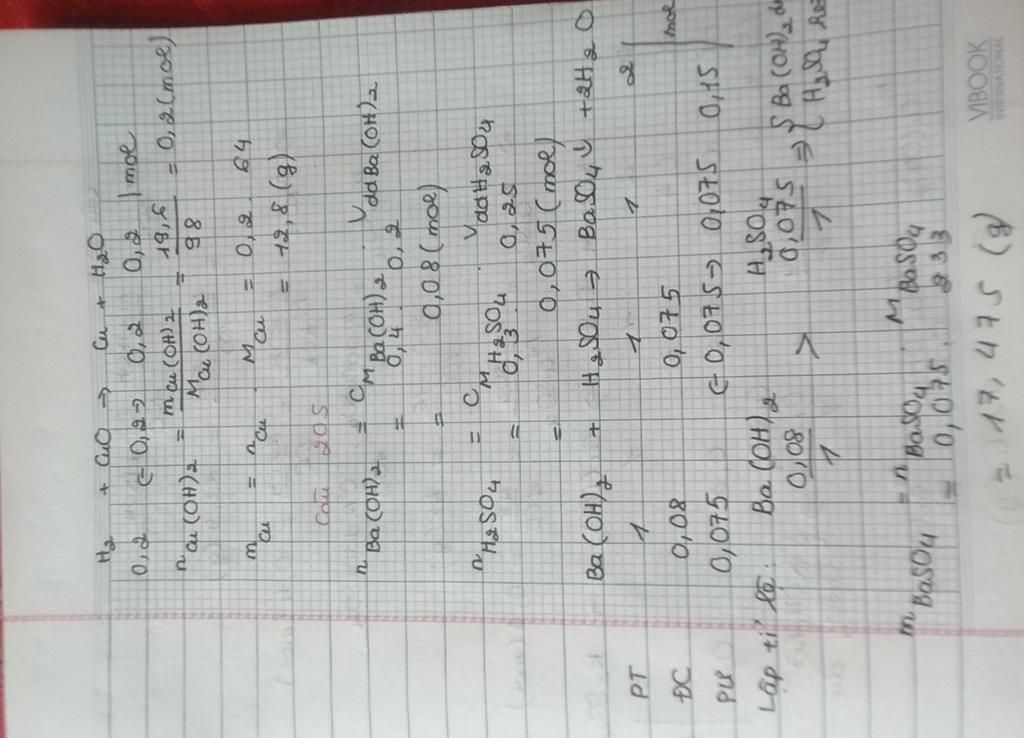 H₂ + CuO → Cu + H₂O
0,2 ← 0,2 → 0,2 0,2 | mol
n Cu(OH)₂ = m Cu(OH)₂ / M Cu(OH)₂ = 19,6 / 98 = 0,2 (mol)
m Cu = n Cu . M Cu = 0,2 . 64
= 12,8 (g)
Câu 205
n Ba(OH)₂ = C M Ba(OH)₂ . V dd Ba(OH)₂
= 0,4 . 0,2
= 0,08 (mol)
n H₂SO₄ = C M H₂SO₄ . V dd H₂SO₄
= 0,3 . 0,25
= 0,075 (mol)
Ba(OH)₂ + H₂SO₄ → BaSO₄↓ + 2H₂O
PT 1 1 1 2 | mol
ĐC 0,08 0,075
PƯ 0,075 ← 0,075 → 0,075 0,15
Lập tỉ lệ: Ba(OH)₂ H₂SO₄
0,08 / 1 > 0,075 / 1 ⇒ { Ba(OH)₂ dư
H₂SO₄ hết
m BaSO₄ = n BaSO₄ . M BaSO₄
= 0,075 . 233
= 17,475 (g)
VIBOOK
INTERNATIONAL